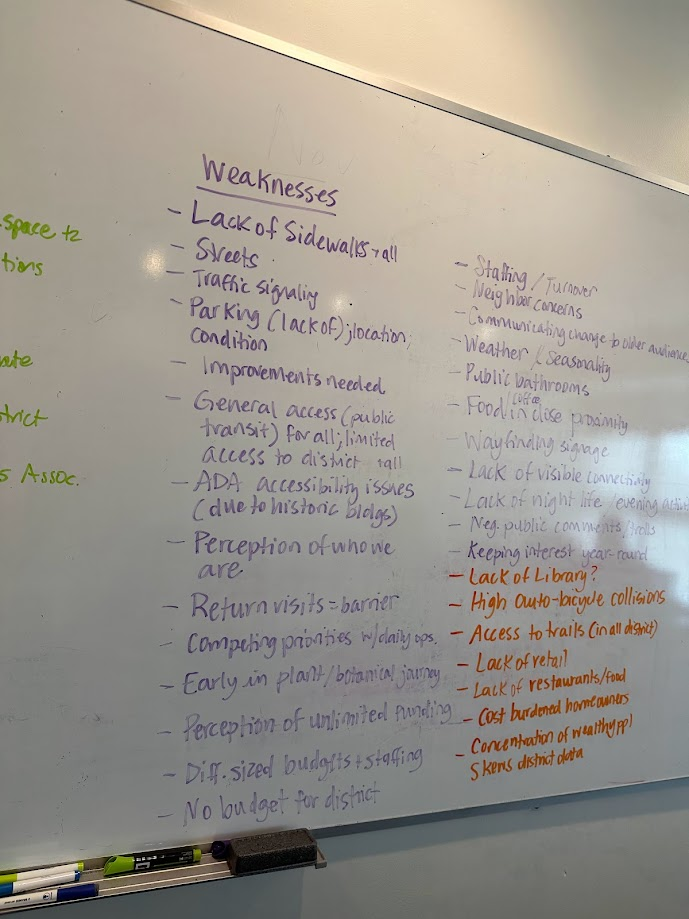 Weaknesses
- Lack of Sidewalks → all
- Streets
- Traffic signaling
- Parking (lack of); location;
condition
- Improvements needed
- General access (public
transit) for all; limited
access to district → all
- ADA accessibility issues
(due to historic bldgs)
- Perception of who we
are
- Return visits = barrier
- Competing priorities w/daily ops.
- Early in plant/botanical journey
- Perception of unlimited funding
- Diff. sized budgets + staffing
- No budget for district
- Staffing / Turnover
- Neighbor concerns
- Communicating change to older audiences
- Weather / Seasonality
- Public bathrooms
- Food/coffee in close proximity
- Wayfinding signage
- Lack of visible connectivity
- Lack of night life / evening activit
- Neg. public comments / trolls
- Keeping interest year-round
- Lack of Library?
- High auto-bicycle collisions
- Access to trails (in all district)
- Lack of retail
- Lack of restaurants/food
- Cost burdened homeowners
- Concentration of wealthy ppl
skews district data
space +2
tions
ate
trict
s Assoc.